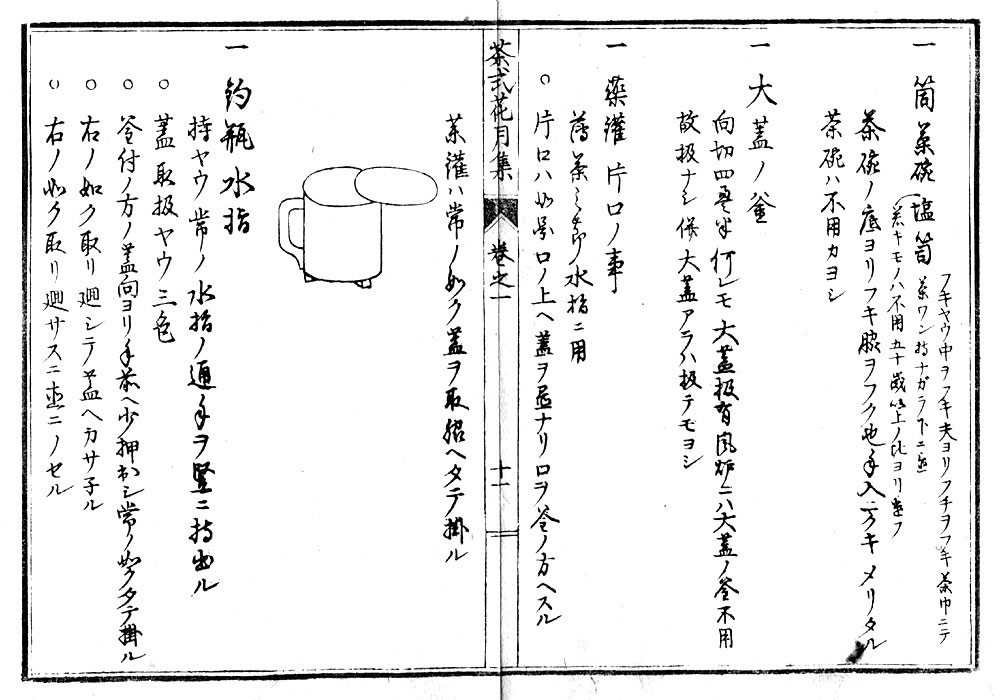 一 筒茶碗 塩筒
フキヤウ中ヲフキ夫ヨリフチヲフキ茶巾ニテ
茶ワン持ナガラ下ニ置
若キモノハ不用五十歳以上ノ比ヨリ遣フ
茶碗ノ底ヨリフキ脇ヲフク也手入ニクキメリタル
茶碗ハ不用カヨシ
一 大蓋ノ釜
向切四畳半何レモ大蓋扱有風炉ニハ大蓋ノ釜不用
故扱ナシ併大蓋アラハ扱テモヨシ
一 薬鑵 片口ノ事
薄茶之節水指ニ用
○ 片口ハ如常口ノ上ヘ蓋ヲ置ナリ口ヲ釜ノ方ヘスル
茶式花月集 巻之一 十一
薬鑵ハ常ノ如ク蓋ヲ取胴ヘタテ掛ル
一 釣瓶水指
持ヤウ常ノ水指ノ通手ヲ竪ニ持出ル
○ 蓋取扱ヤウ三色
○ 釜付ノ方ノ蓋向ヨリ手前ヘ少押出シ常ノ如クタテ掛ル
○ 右ノ如ク取リ廻シテ蓋ヘカサ子ル
○ 右ノ如ク取リ廻サスニ直ニノセル